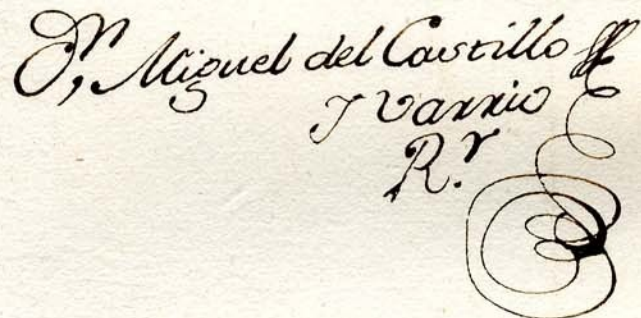 Dn, Miguel del Castillo
Y Varrio
R.r